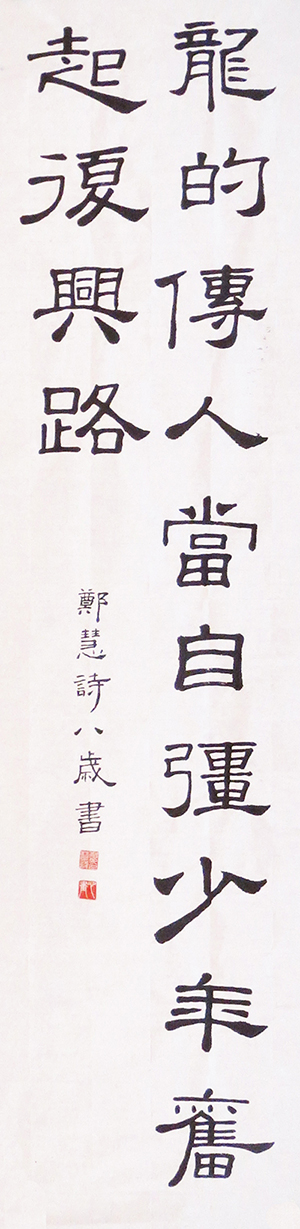 龍的傳人當自彊少年奮
起復興路
鄭慧詩八歲書